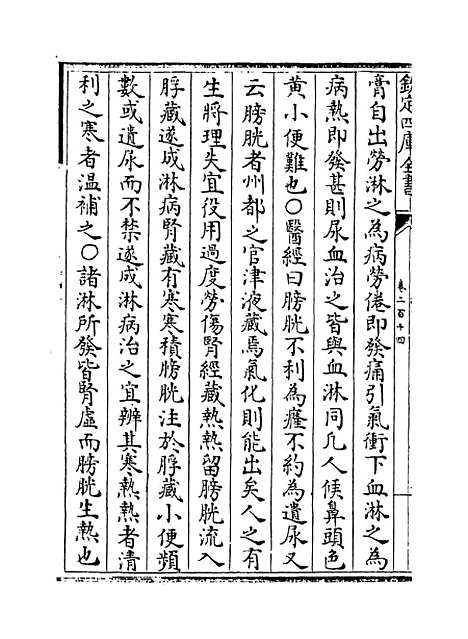 欽定四庫全書
卷二百十四
膏自出勞淋之為病勞倦即發痛引氣衝下血淋之為
病熱即發甚則尿血治之皆與血淋同凡人候鼻頭色
黃小便難也〇醫經曰膀胱不利為癃不約為遺尿又
云膀胱者州都之官津液藏焉氣化則能出矣人之有
生將理失宜役用過度勞傷腎經藏熱熱留膀胱流入
脬藏遂成淋病腎藏有寒寒積膀胱注於脬藏小便頻
數或遺尿而不禁遂成淋病治之宜辨其寒熱熱者清
利之寒者温補之〇諸淋所發皆腎虛而膀胱生熱也